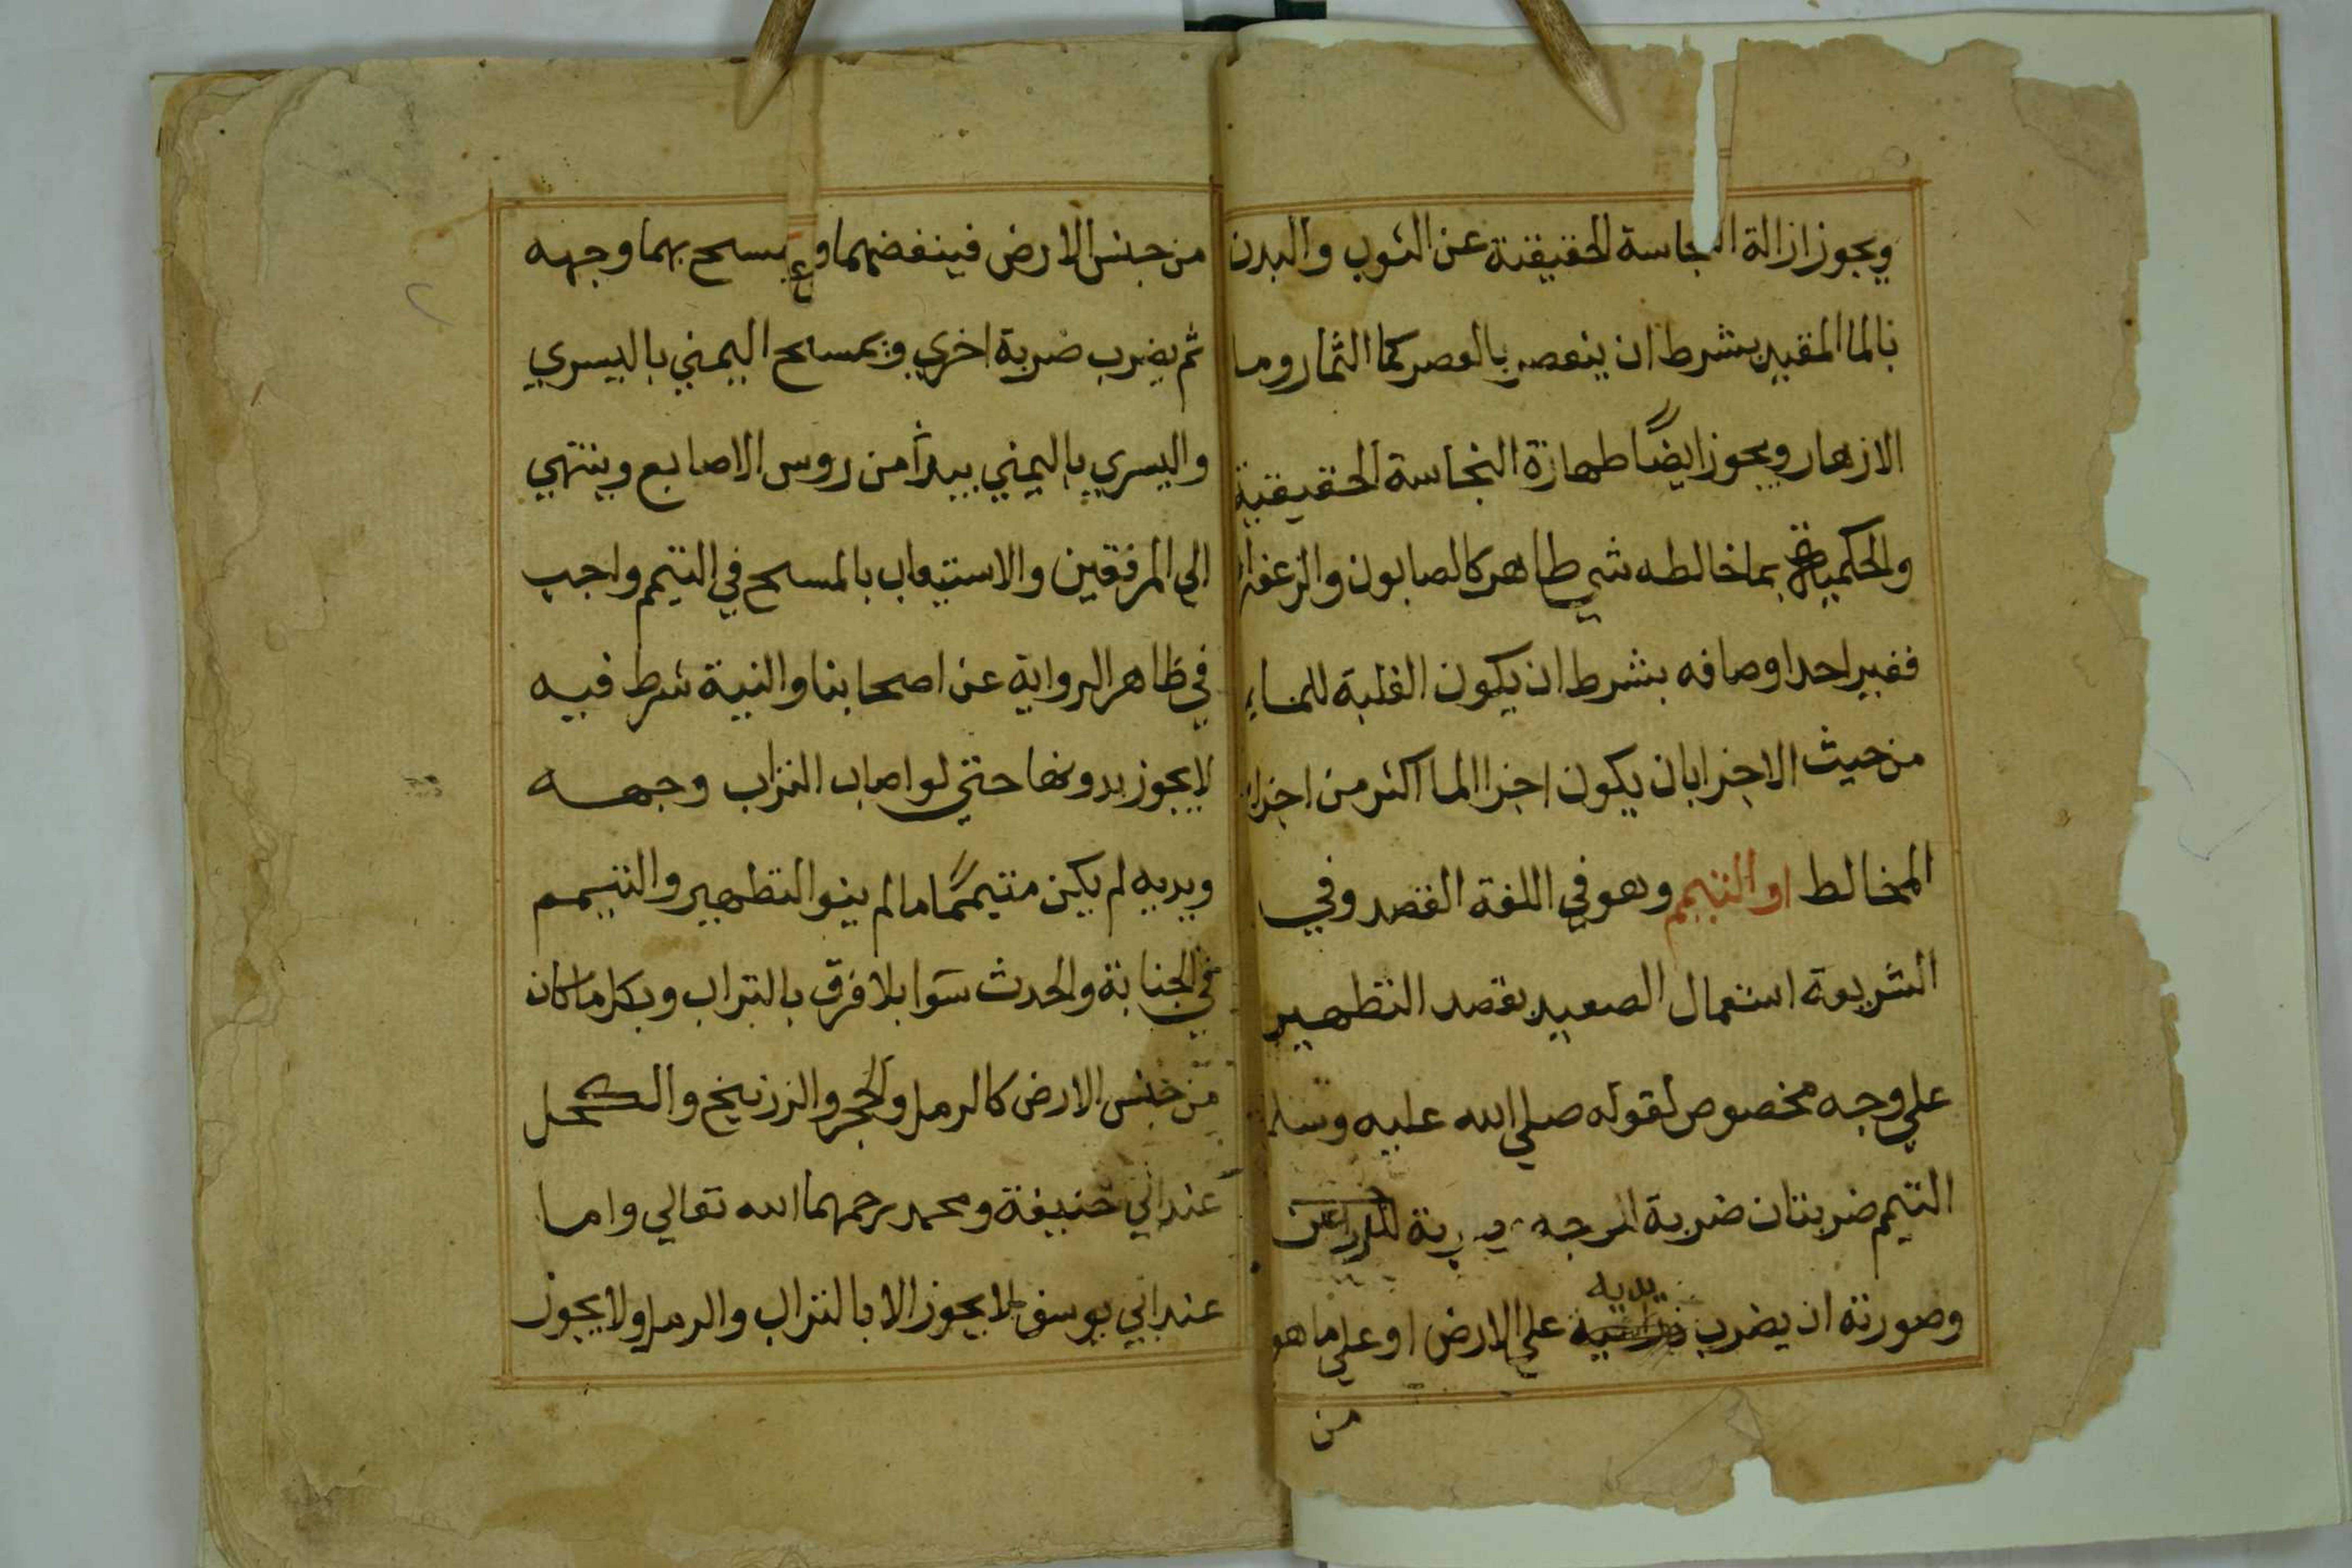 ويجوز ازالة النجاسة الحقيقية عن الثوب والبدن
بالما المقيد بشرط ان ينعصر بالعصر كما الثمار وما
الازهار ويجوز ايضًا طهارة النجاسة الحقيقية
والحكمية بما خالطه شي طاهر كالصابون والزعفران
فغير احد اوصافه بشرط ان يكون الغلبة للماء
من حيث الاجزا بان يكون اجزا الما اكثر من اجزا
المخالط او التيمم وهو في اللغة القصد وفي
الشريعة استعمال الصعيد بقصد التطهير
علي وجه مخصوص لقوله صلي الله عليه وسلم
التيمم ضربتان ضربة للوجه وضربة للذراعين
وصورته ان يضرب يديه علي الارض او علي ما هو
من
من جنس الارض فينفضهما ويمسح بهما وجهه
ثم يضرب ضربة اخري ويمسح اليمني باليسري
واليسري باليمني يبدأ من روس الاصابع وينتهي
الي المرفقين والاستيعاب بالمسح في التيمم واجب
في ظاهر الرواية عن اصحابنا والنية شرط فيه
لا يجوز بدونها حتي لو اصاب التراب وجهه
ويديه لم يكن متيممًا ما لم ينو التطهير والتيمم
في الجنابة والحدث سوا بلا فرق بالتراب وبكل ما كان
من جنس الارض كالرمل والحجر والزرنيخ والكحل
عند ابي حنيفة ومحمد رحمهما الله تعالي واما
عند ابي يوسف لا يجوز الا بالتراب والرمل ولا يجوز